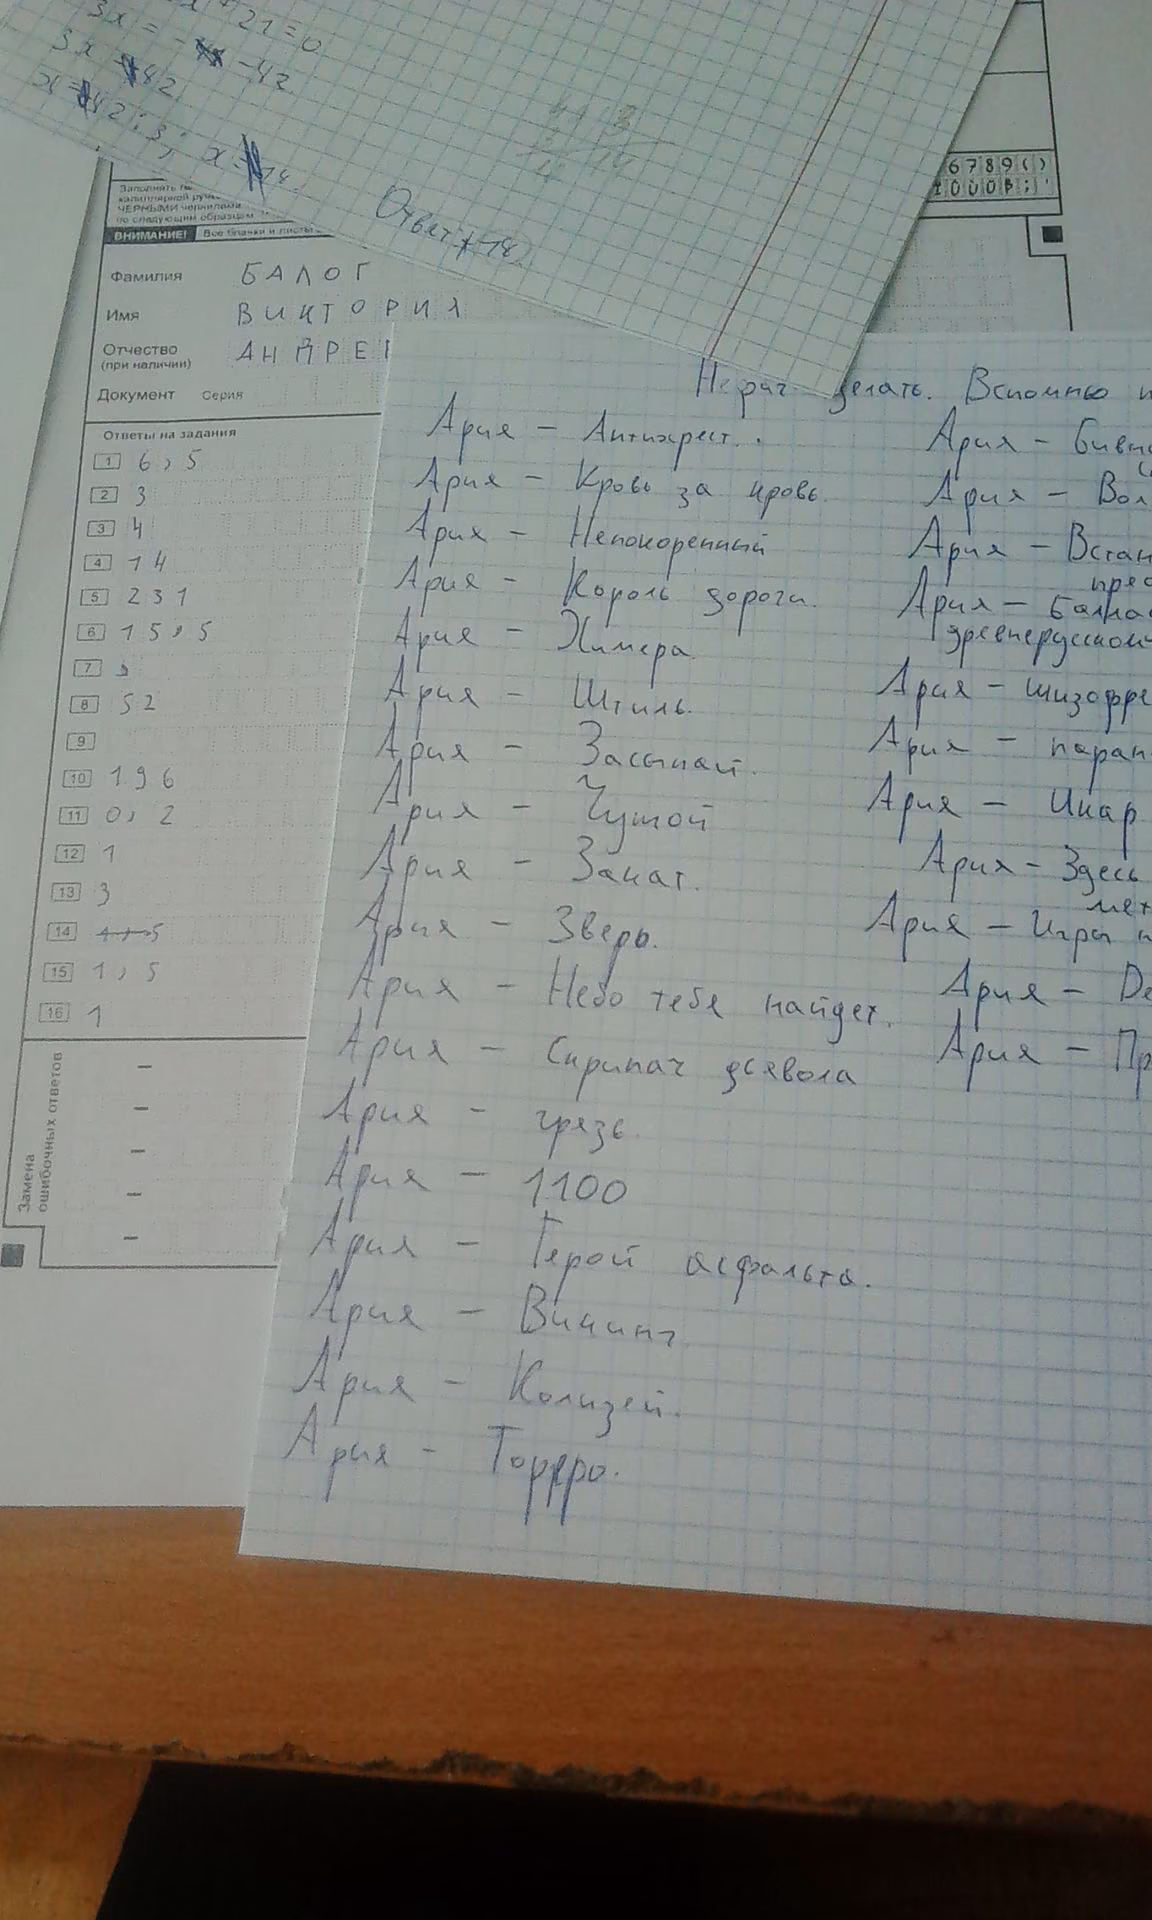 21=0
3x = - -42
3x 42
x = 42:3; x = 18.
Ответ 18.
6789()
Заполнять
капиллярной ручк
ЧЁРНЫМИ чернилами
по следующим образцам
ВНИМАНИЕ! Все бланки и листы
Фамилия БАЛОГ
Имя ВИКТОРИЯ
Отчество АНДРЕ
(при наличии)
Документ Серия
Ответы на задания
1 6,5
2 3
3 4
4 14
5 231
6 15,5
7
8 52
9
10 196
11 0,2
12 1
13 3
14
15 1,5
16 1
Замена
ошибочных ответов
делать. Вспомню
Ария - Антихрист.
Ария - Кровь за кровь.
Ария - Непокоренный
Ария - Король дороги.
Ария - Химера.
Ария - Штиль.
Ария - Засыпай.
Ария - Чужой
Ария - Закат.
Ария - Зверь.
Ария - Небо тебя найдет.
Ария - Скрипач дьявола
Ария - грязь.
Ария - 1100
Ария - Герой асфальта.
Ария - Викинг.
Ария - Колизей.
Ария - Торрро.
Ария -
Ария - Вол
Ария - Встан
пред
Ария - Балла
древнерусском
Ария - шизофре
Ария - паран
Ария - Икар
Ария - Здесь
Ария - Игры
Ария - De
Ария - Пр